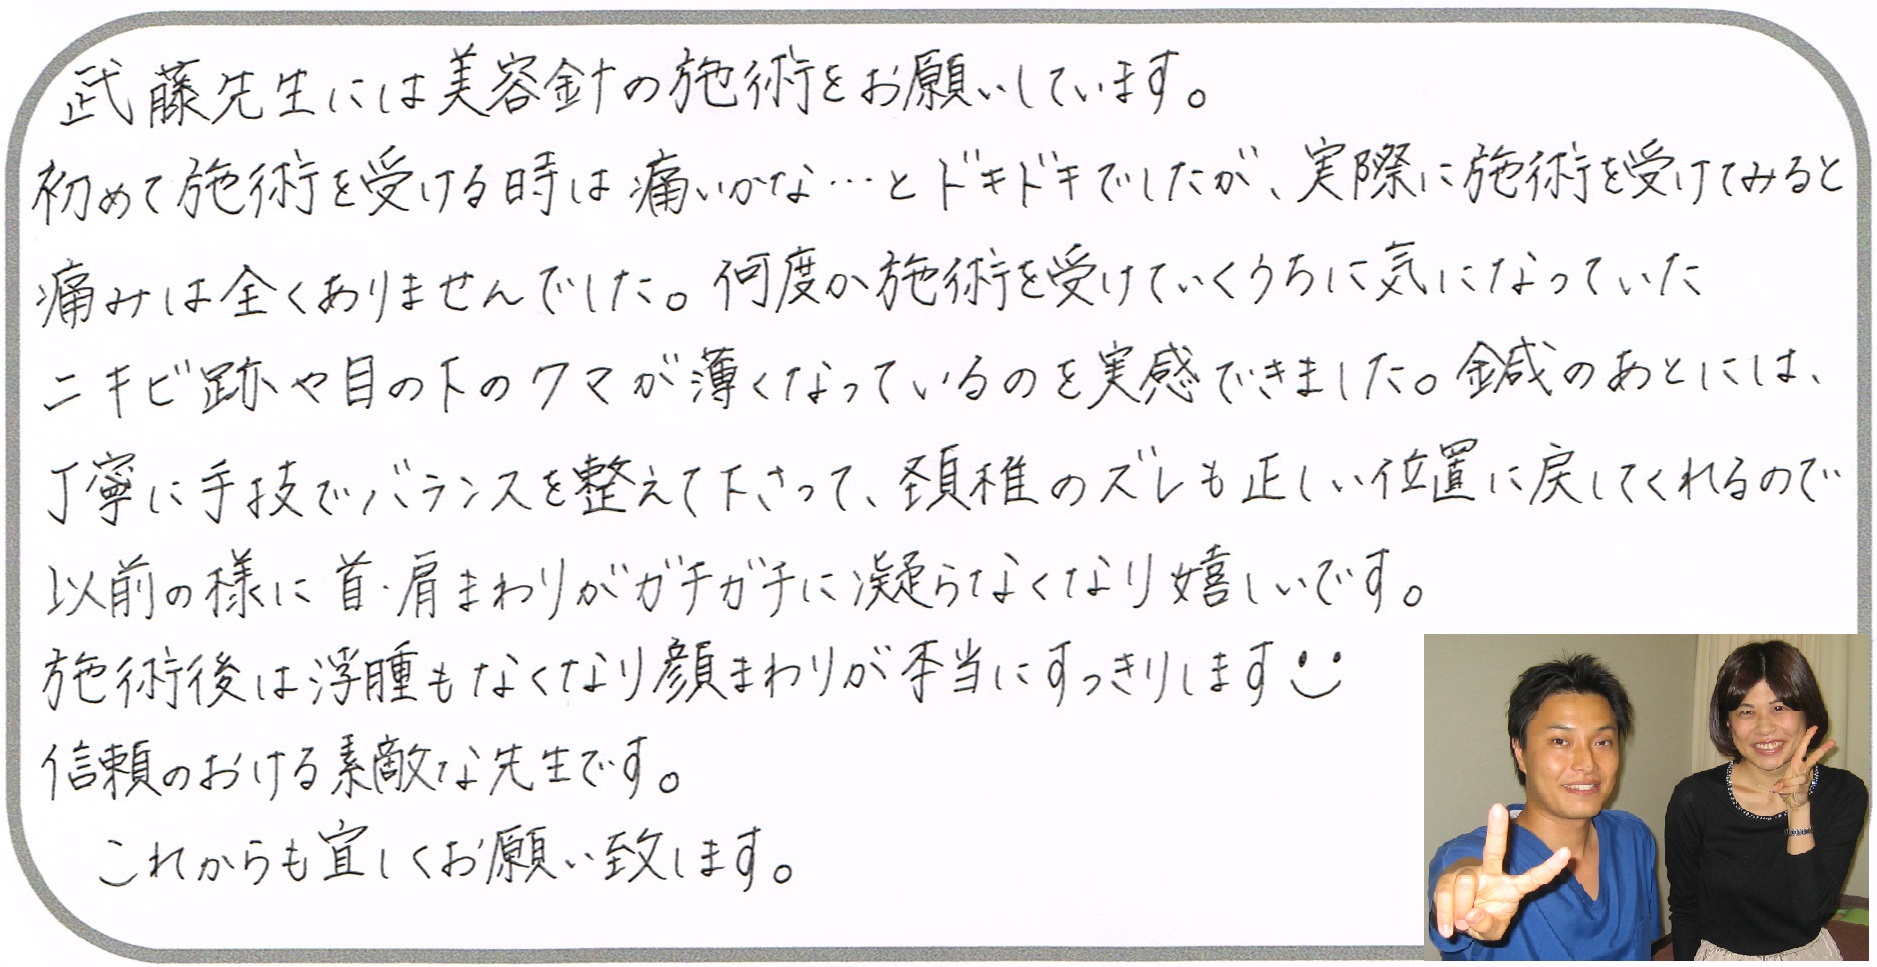 武藤先生には美容針の施術をお願いしています。
初めて施術を受ける時は痛いかな…とドキドキでしたが、実際に施術を受けてみると
痛みは全くありませんでした。何度か施術を受けていくうちに気になっていた
ニキビ跡や目の下のクマが薄くなっているのを実感できました。鍼のあとには、
丁寧に手技でバランスを整えて下さって、頚椎のズレも正しい位置に戻してくれるので
以前の様に首・肩まわりがガチガチに凝らなくなり嬉しいです。
施術後は浮腫もなくなり顔まわりが本当にすっきりします
信頼のおける素敵な先生です。
これからも宜しくお願い致します。